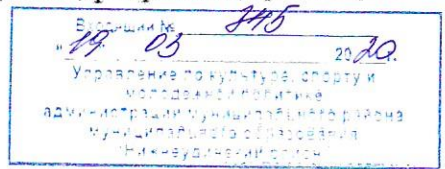 Входящий № 745
"19" 03 2020г.
Управление по культуре, спорту и
молодежной политике
администрации муниципального района
муниципального образования
"Нижнеудинский район"